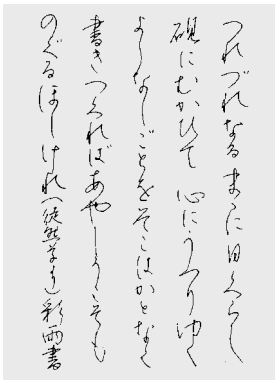 つれづれなるまゝに日くらし
硯にむかひて 心にうつりゆく
よしなしごとをそこはかとなく
書きつくればあやしうこそも
のぐるほしけれ(徒然草より)彩雨書